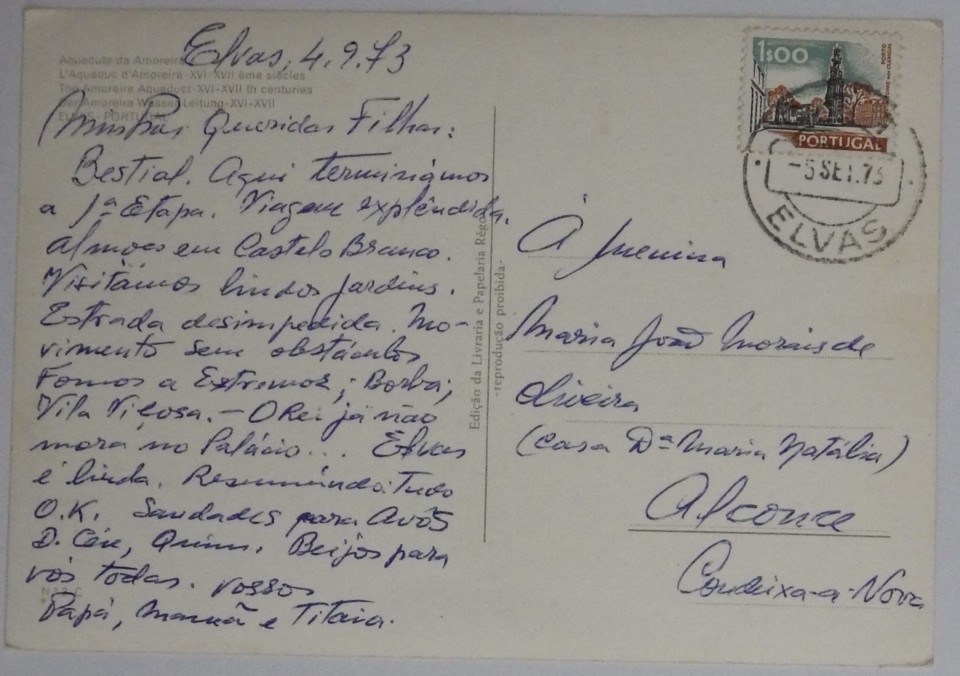 Aqueduto da Amoreira
L'Aqueduc d'Amoreira -XVI-XVII ème siècles
The Amoreira Aqueduct -XVI-XVII th centuries
Der Amoreira Wasser-Leitung-XVI-XVII
ELVAS - PORTUGAL
Elvas, 4.9.73
Minhas Queridas Filhas:
Bestial. Aqui terminámos
a 1ª Etapa. Viagem explêndida.
Almoço em Castelo Branco.
Visitámos lindos jardins.
Estrada desimpedida. Mo-
vimento sem obstáculos
Fomos a Extremoz; Borba;
Vila Viçosa. - O Rei já não
mora no Palácio... Elvas
é linda. Resumindo: Tudo
O.K. Saudades para Avós
D. Céu, Beijos para
vós todas. vossos
Papá, Mamã e Titaia.
Edição da Livraria e Papelaria Rêgo
-reprodução proibida-
1$00
PORTO
TORRE DOS CLERIGOS
PORTUGAL
-5 SET. 73
ELVAS
À menina
Maria João Morais de
Oliveira
(Casa Dª Maria Natália)
Alconce
Condeixa-a-Nova